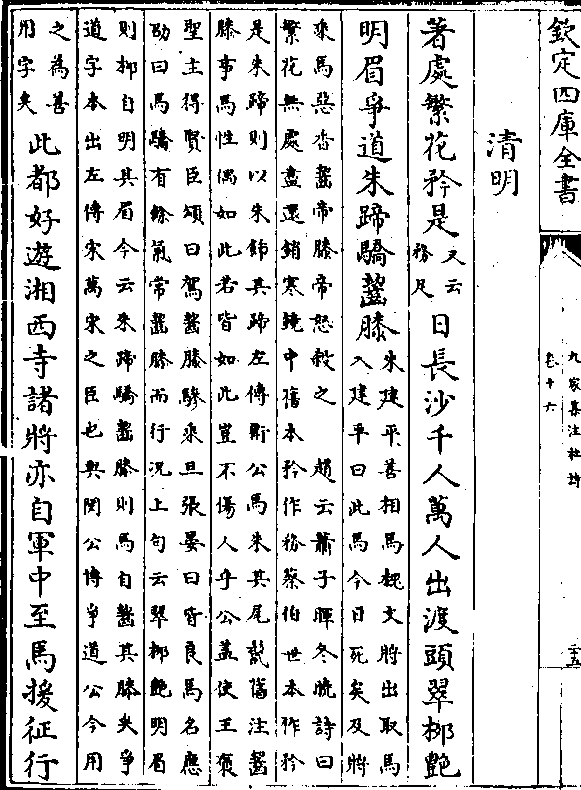 欽定四庫全書
九家集注杜詩
卷十六
清明
著處繁花矜是
又云
務足
日長沙千人萬人出渡頭翠柳艷
明眉爭道朱蹄驕齧膝
朱建平善相馬魏文將出取馬
入建平曰此馬今日死矣及將
乘馬惡香齧帝膝帝怒殺之 趙云蕭子暉冬曉詩曰
繁花無處盡還銷寒鏡中舊本矜作務蔡伯世本作矜
是朱蹄則以朱飾其蹄左傳衛公馬朱其尾鬛舊注齧
膝事馬性偶如此若皆如此豈不傷人乎公蓋使王褒
聖主得賢臣頌曰駕齧膝驂乘旦張晏曰皆良馬名應
劭曰馬驕有餘氣常齧膝而行況上句云翠柳艷明眉
則柳自明其眉今云朱蹄驕齧膝則馬自齧其膝矣爭
道字本出左傳宋萬宋之臣也與閔公博爭道公今用
之為善
用字矣
此都好遊湘西寺諸將亦自軍中至馬援征行